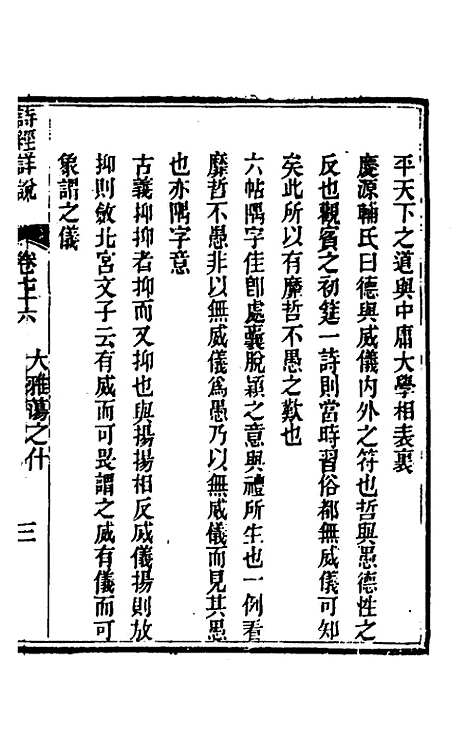 平天下之道與中庸大學相表裏
慶源輔氏曰德與威儀內外之符也哲與愚德性之
反也觀賓之初筵一詩則當時習俗都無威儀可知
矣此所以有靡哲不愚之歎也
六帖隅字佳卽處囊脫穎之意與禮所生也一例看
靡哲不愚非以無威儀爲愚乃以無威儀而見其愚
也亦隅字意
古義抑抑者抑而又抑也與揚揚相反威儀揚則放
抑則斂北宮文子云有威而可畏謂之威有儀而可
象謂之儀
詩經詳說 卷七十六 大雅蕩之什 三